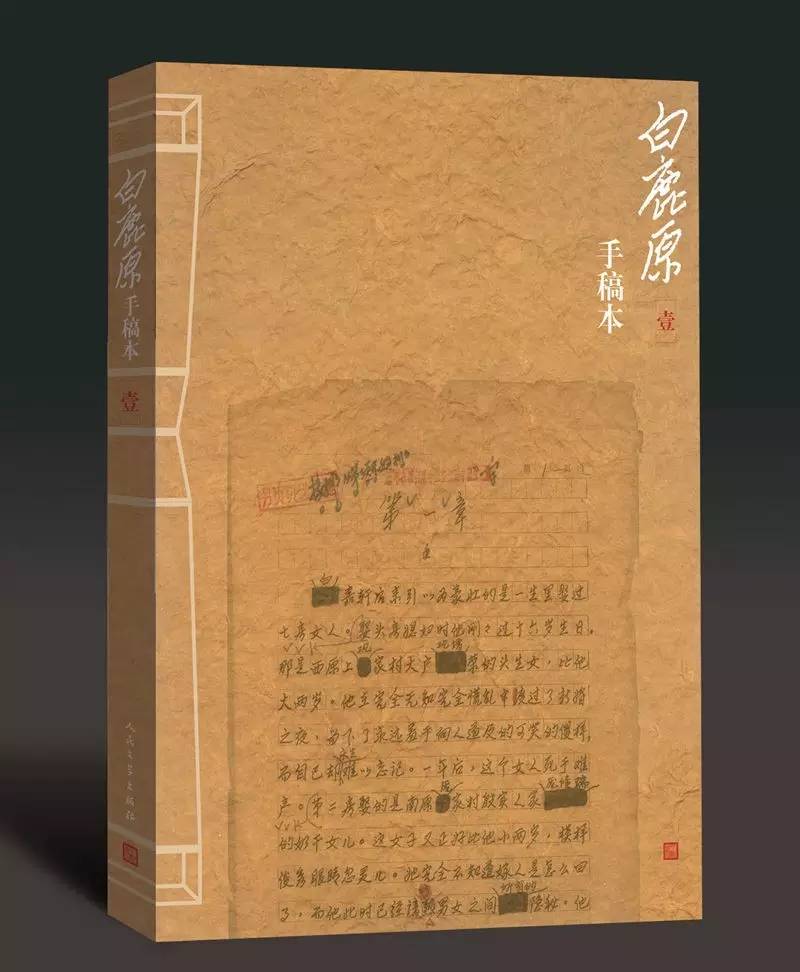 白鹿原
手稿本
壹
人民文学出版社
白鹿原
手稿本
壹
第一章
白
嘉轩后来引以为豪壮的是一生里娶过
七房女人。娶头房媳妇时他刚々过十六岁生日。
那是西原上家村大户荣的头生女，比他
大两岁。他在完全无知完全慌乱中度过了新婚
之夜，留下了永远羞于向人道及的可笑的傻样，
而自己却永生难以忘记。一年后，这个女人死于难
产。第二房娶的是南原庞家村殷实人家庞修瑞
的奶干女儿。这女子又正好比他小两岁，模样
俊秀眼睛忽灵儿。她完全不知道嫁人是怎么回
事，而他此时已经谙熟男女之间所有的隐秘。他